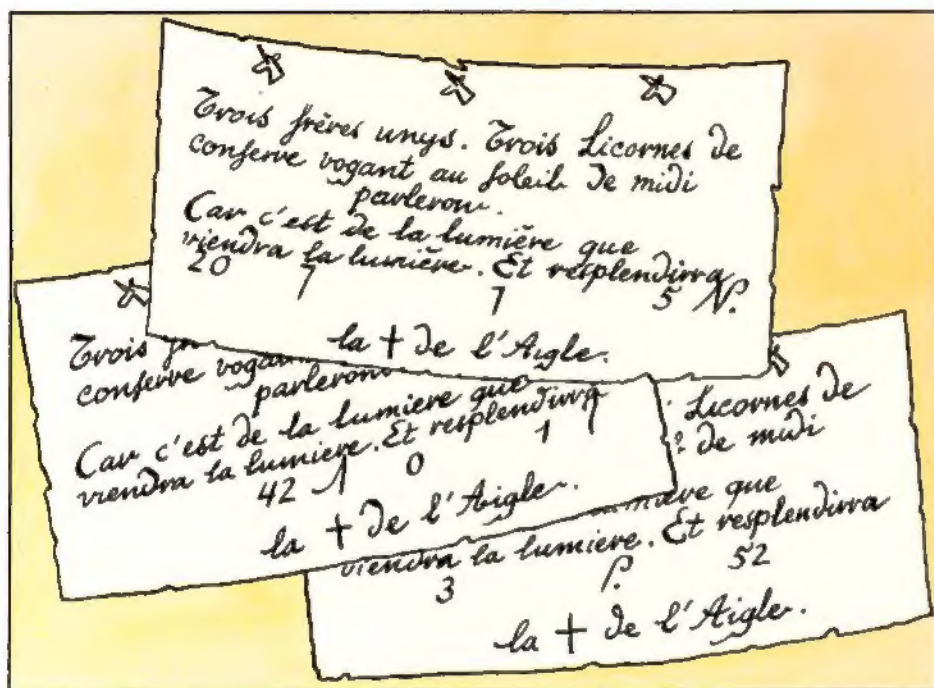 Trois frères unys. Trois Licornes de
conserve vogant au soleil de midi
parleron.
Car c'est de la lumière que
viendra la lumière. Et resplendirra
20 7 7 5 N.
la + de l'Aigle.
Trois
conserve
parleron
Car c'est de la lumiere que
viendra la lumiere. Et resplendirra
42 0 1
la + de l'Aigle.
Licornes de
de midi
que
viendra la lumiere. Et resplendirra
3 52
la + de l'Aigle.